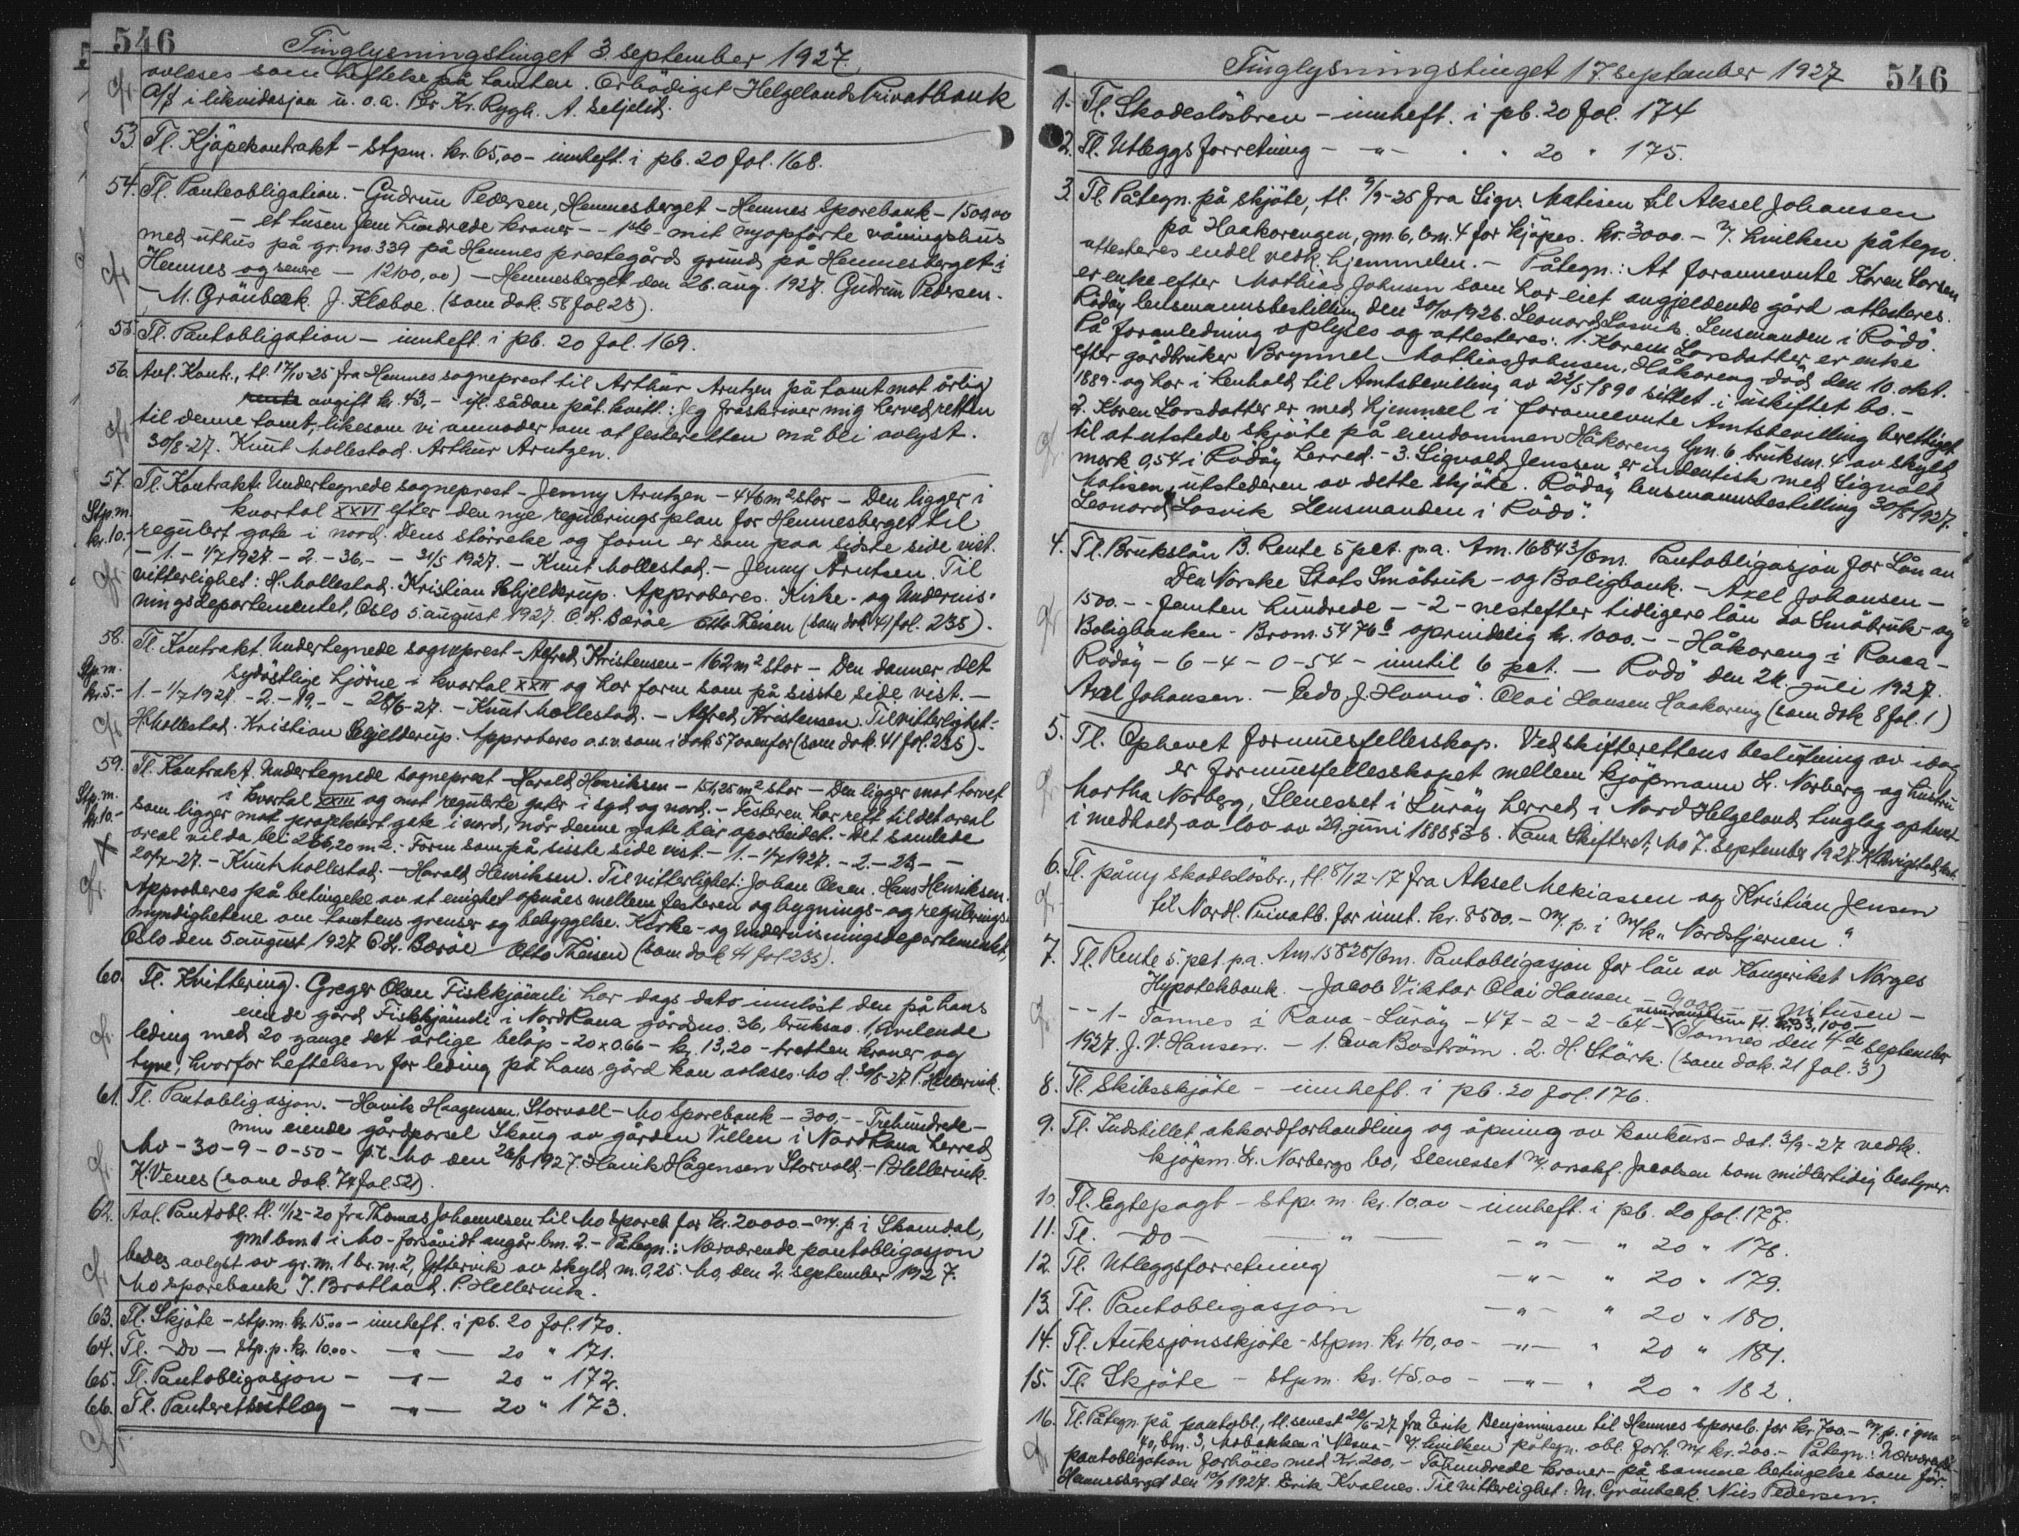 546
Tinglysningstinget 3. september 1927.
avlæses som heftelse på tomten. Ærbödigst Helgelands Privatbank
A/S i likvidasjon u. o. a. Br. Kr. Rygh. A. Setjelid.
53. Tl. Kjöpekontrakt - Stpm. kr. 65,00 - innheft. i pb. 20 fol. 168.
54. Tl. Panteobligation. - Gudrun Pedersen, Hemnesberget - Hemnes Sparebank - 1500,00
- et tusen fem hundrede kroner - - 1ste - mit nyopförte våningshus
med uthus på gr. no. 339 på Hemnes prestegårds grund på Hemnesberget i
Hemnes og senere - 12100,00) - Hemnesberget den 26. aug. 1927. Gudrun Pedersen.
- M. Grönbeck. J. Klæboe. (som dok. 58 fol 23).
55. Tl. Pantobligation - innheft i pb. 20 fol. 169.
56. Avl. Kontr., tl. 17/10-25 fra Hemnes sogneprest til Arthur Arntzen på tomt mot årlig
avgift kr. 43,- ifl. sådan påt. kvitt: Jeg fraskriver mig herved retten
til denne tomt, likesom vi anmoder om at festeretten må bli avlyst.
30/8-27. Knut Mollestad. Arthur Arntzen.
57. Tl. Kontrakt. Undertegnede sogneprest - Jenny Arntzen - 446 m2 stor - Den ligger i
Stp.m. kvartal XXVI efter den nye reguleringsplan for Hemnesberget til
kr. 10.- regulert gate i nord. Dens störrelse og form er som paa sidste side vist.
- 1. - 1/7 1927 - 2 - 36,- - 31/5 1927. - Knut Mollestad. - Jenny Arntsen. Til
vitterlighet: H. Mollestad. Kristian Schjelderup. Approberes. Kirke- og Undervis-
ningsdepartementet, Oslo 5. august 1927. O. L. Bæröe Otto Theisen (som dok 41 fol. 235).
58. Tl. Kontrakt. Undertegnede sogneprest - Alfred Kristensen - 162 m2 stor - Den danner det
Stp.m. sydöstlige hjörne i kvartal XXII og har form som på sisste side vist. -
kr. 5.- 1. - 1/7 1921. - 2. - 19,- - 28/6-27. - Knut Mollestad. - Alfred Kristensen. Til vitterlighet -
H. Mollestad. Kristian Schjelderup. Approberes o.s.v. som i dok. 57 ovenfor (som dok. 41 fol. 235) -
59. Tl. Kontrakt. Undertegnede sogneprest - Harald Henriksen - 151,25 m2 stor - Den ligger mot torvet
Stp.m. i kvartal XXIII og mot regulerte gater i syd og nord. - Festeren har rett til det areal
kr. 10.- som ligger mot projektert gate i nord, når denne gate blir oparbeidet. - Det samlede
areal vil da bli 266,20 m2. - Form som på sisste side vist. - 1. - 1/7 1927. - 2. - 23 - -
20/7-27. - Knut Mollestad. - Harald Henriksen. Til vitterlighet: Johan Olsen. Hans Henriksen.
Approberes på betingelse av at enighet opnåes mellem festeren og bygnings- og regulerings-
myndighetene om tomtens grenser og bebyggelse. Kirke- og Undervisningsdepartementet,
Oslo den 5. august 1927 O. L. Bæröe Otto Theisen (som dok 41 fol 235).
60. Tl. Kvittering. Greger Olsen Fiskkjömli har dags dato innlöst den på hans
eiende gård Fiskkjömli i Nord Rana gårdsno. 36, bruksno. 1, hvilende
leding med 20 gange det årlige belöp - 20 x 0.66 - kr. 13,20 - tretten kroner og
tyve, hvorfor heftelsen for leding på hans gård kan avlæses. Mo d. 30/8-27. P. Hellervik.
61. Tl. Pantobligasjon. - Havik Haagensen Storvoll - Mo Sparebank - 300,- - Trehundrede -
min eiende gårdparsel Skaug av gården Villen i Nord Rana herred
Mo - 30 - 9 - 0 - 50 - p.t. Mo den 26/8 1927. Havik Hågensen Storvold. - P. Hellervik.
K. Venes (som dok. 74 fol 52).
62. Avl. Pantobl. tl. 11/12-20 fra Thomas Johannesen til Mo Spareb. for kr. 20000 - m/. p. i Skamdal,
gm 1 bm 1 i Mo - forsåvidt angår bm. 2. - Påtegn.: Nærværende pantobligasjon
bedes avlyst av gr. m. 1 br. m. 2, Yttervik av skyld m. 0,25. Mo, den 2. september 1927.
Mo Sparebank J. Bratland. P. Hellervik.
63. Tl. Skjöte - stp.m. kr. 15.00 - innheft. i pb. 20 fol. 170.
64. Tl. - Do - stp. p. kr. 10.00 - - " - 20 " 171.
65. Tl. Pantobligasjon - - " - 20 " 172.
66. Tl. Panterettsutlæg - - " - 20 " 173.
Tinglysningstinget 17. september 1927
546
1. Tl. Skadeslösbrev - innheft. i pb. 20 fol. 174
2. Tl. Utleggsforretning - - " - " " 20 " 175.
3. Tl. Påtegn. på skjöte, tl. 9/9-25 fra Sigv. Matisen til Aksel Johansen
på Haakorengen, gm. 6, bm. 4 for kjöpes. kr. 3000. - v/. hvilken påtegn.
attesteres endel vedk. hjemmelen. - Påtegn.: At forannevnte Karen Larsen
er enke efter Mathias Johnsen som har eiet angjeldende gård attesteres.
Rödöy lensmannsbestilling den 30/10 1926. Leonard Losvik. Lensmanden i Rödö.
På foranledning oplyses og attesteres: 1. Karen Larsdatter er enke
efter gårdbruker Brynnel Mathias Johnsen, Håkoreng död den 10. okt.
1889 - og har i henhold til Amtsbevilling av 23/5 1890 sittet i uskiftet bo. -
2. Karen Larsdatter er med hjemmel i forannevnte Amtsbevilling berettiget
til at utstede skjöte på eiendommen Håkoreng gm. 6 bruksm. 4 av skyld
mark 0,54 i Rödöy herred. - 3. Sigvald Jenssen er indentisk med Sigvald
Matisen, utstederen av dette skjöte. Rödöy lensmannsbestilling 30/8 1927.
Leonard Losvik Lensmanden i Rödö.
4. Tl. Brukslån B. Rente 5 pct. p.a. Am. 16843/bm. Pantobligasjon for Lån av
Den Norske Stats Småbruk- og Boligbank. - Axel Johansen -
1500. - - femten hundrede - - 2 - nestefter tidligere lån av Småbruk- og
Boligbanken - Brom. 5476 b oprindelig kr. 1000. - - Håkoreng i Rana -
Rödöy - 6 - 4 - 0 - 54 - inntil 6 pct. - Rödö den 24. juli 1927.
Axel Johansen. - Edv. J. Havnö. Olai Hansen Haakoreng (som dok 8 fol. 1)
5. Tl. Ophevet formuesfellesskap. Ved skifterettens beslutning av idag
er formuesfellesskapet mellem kjöpmann Lr. Norberg og hustru
Martha Norberg, Slenesset i Luröy herred i Nord Helgeland tinglag ophevet
i medhold av lov av 29. juni 1888 § 38. Rana Skifterett, Mo 7. september 1927.
6. Tl. påny skadeslösbr., tl 8/12-17 fra Aksel Mekiassen og Kristian Jensen
til Nordl. Privatb. for innt. kr. 8500. - m/. p. i m/k. "Nordstjernen".
7. Tl. Rente 5. pct. p.a. Am. 15828/bm. Pantobligasjon for lån av Kongeriket Norges
Hypotekbank. - Jacob Viktor Olai Hansen - 9000 - Nitusen -
- - 1 - Tonnes i Rana - Luröy - 47 - 2 - 2 - 64 - Tonnes den 4de september
1927. J. V. Hansen. - 1. Eva Boström. 2. H. Störk. (som dok. 21 fol. 3)
8. Tl. Skibsskjöte - innheft. i pb. 20 fol. 176.
9. Tl. Indstillet akkordforhandling og åpning av konkurs - dat. 3/9-27 vedk.
kjöpm. Lr. Norbergs bo, Slenesset m/. orsakf. Jacobsen som midlertidig bestyrer.
10. Tl. Egtepagt - stp. m. kr. 10.00 - innheft. i pb. 20 fol. 177.
11. Tl. - Do - " - " - " 20 " 178.
12. Tl. Utleggsforretning - " - " 20 " 179.
13. Tl. Pantobligasjon - " - " 20 " 180.
14. Tl. Auksjonsskjöte - stpm. kr 40,00 - - " - " 20 " 181.
15. Tl. Skjöte - stpm. kr. 45.00 - - " - " 20 " 182.
16. Tl. Påtegn. på pantobl., tl. senest 26/6-27 fra Erik Benjaminsen til Hemnes Spareb. for kr. 700. - m/. p. i gm
40, bm. 3, Mobakken i Nesna - v/. hvilken påtegn. obl. forh. m/ kr. 200. - Påtegn.: Nærværende
pantobligation forhöies med kr. 200, - Tohundrede kroner - på samme betingelse som för.
Hemnesberget den 10/9 1927. Erik Kvalnes. Til vitterlighet: M. Grönbeck. Nils Pedersen.